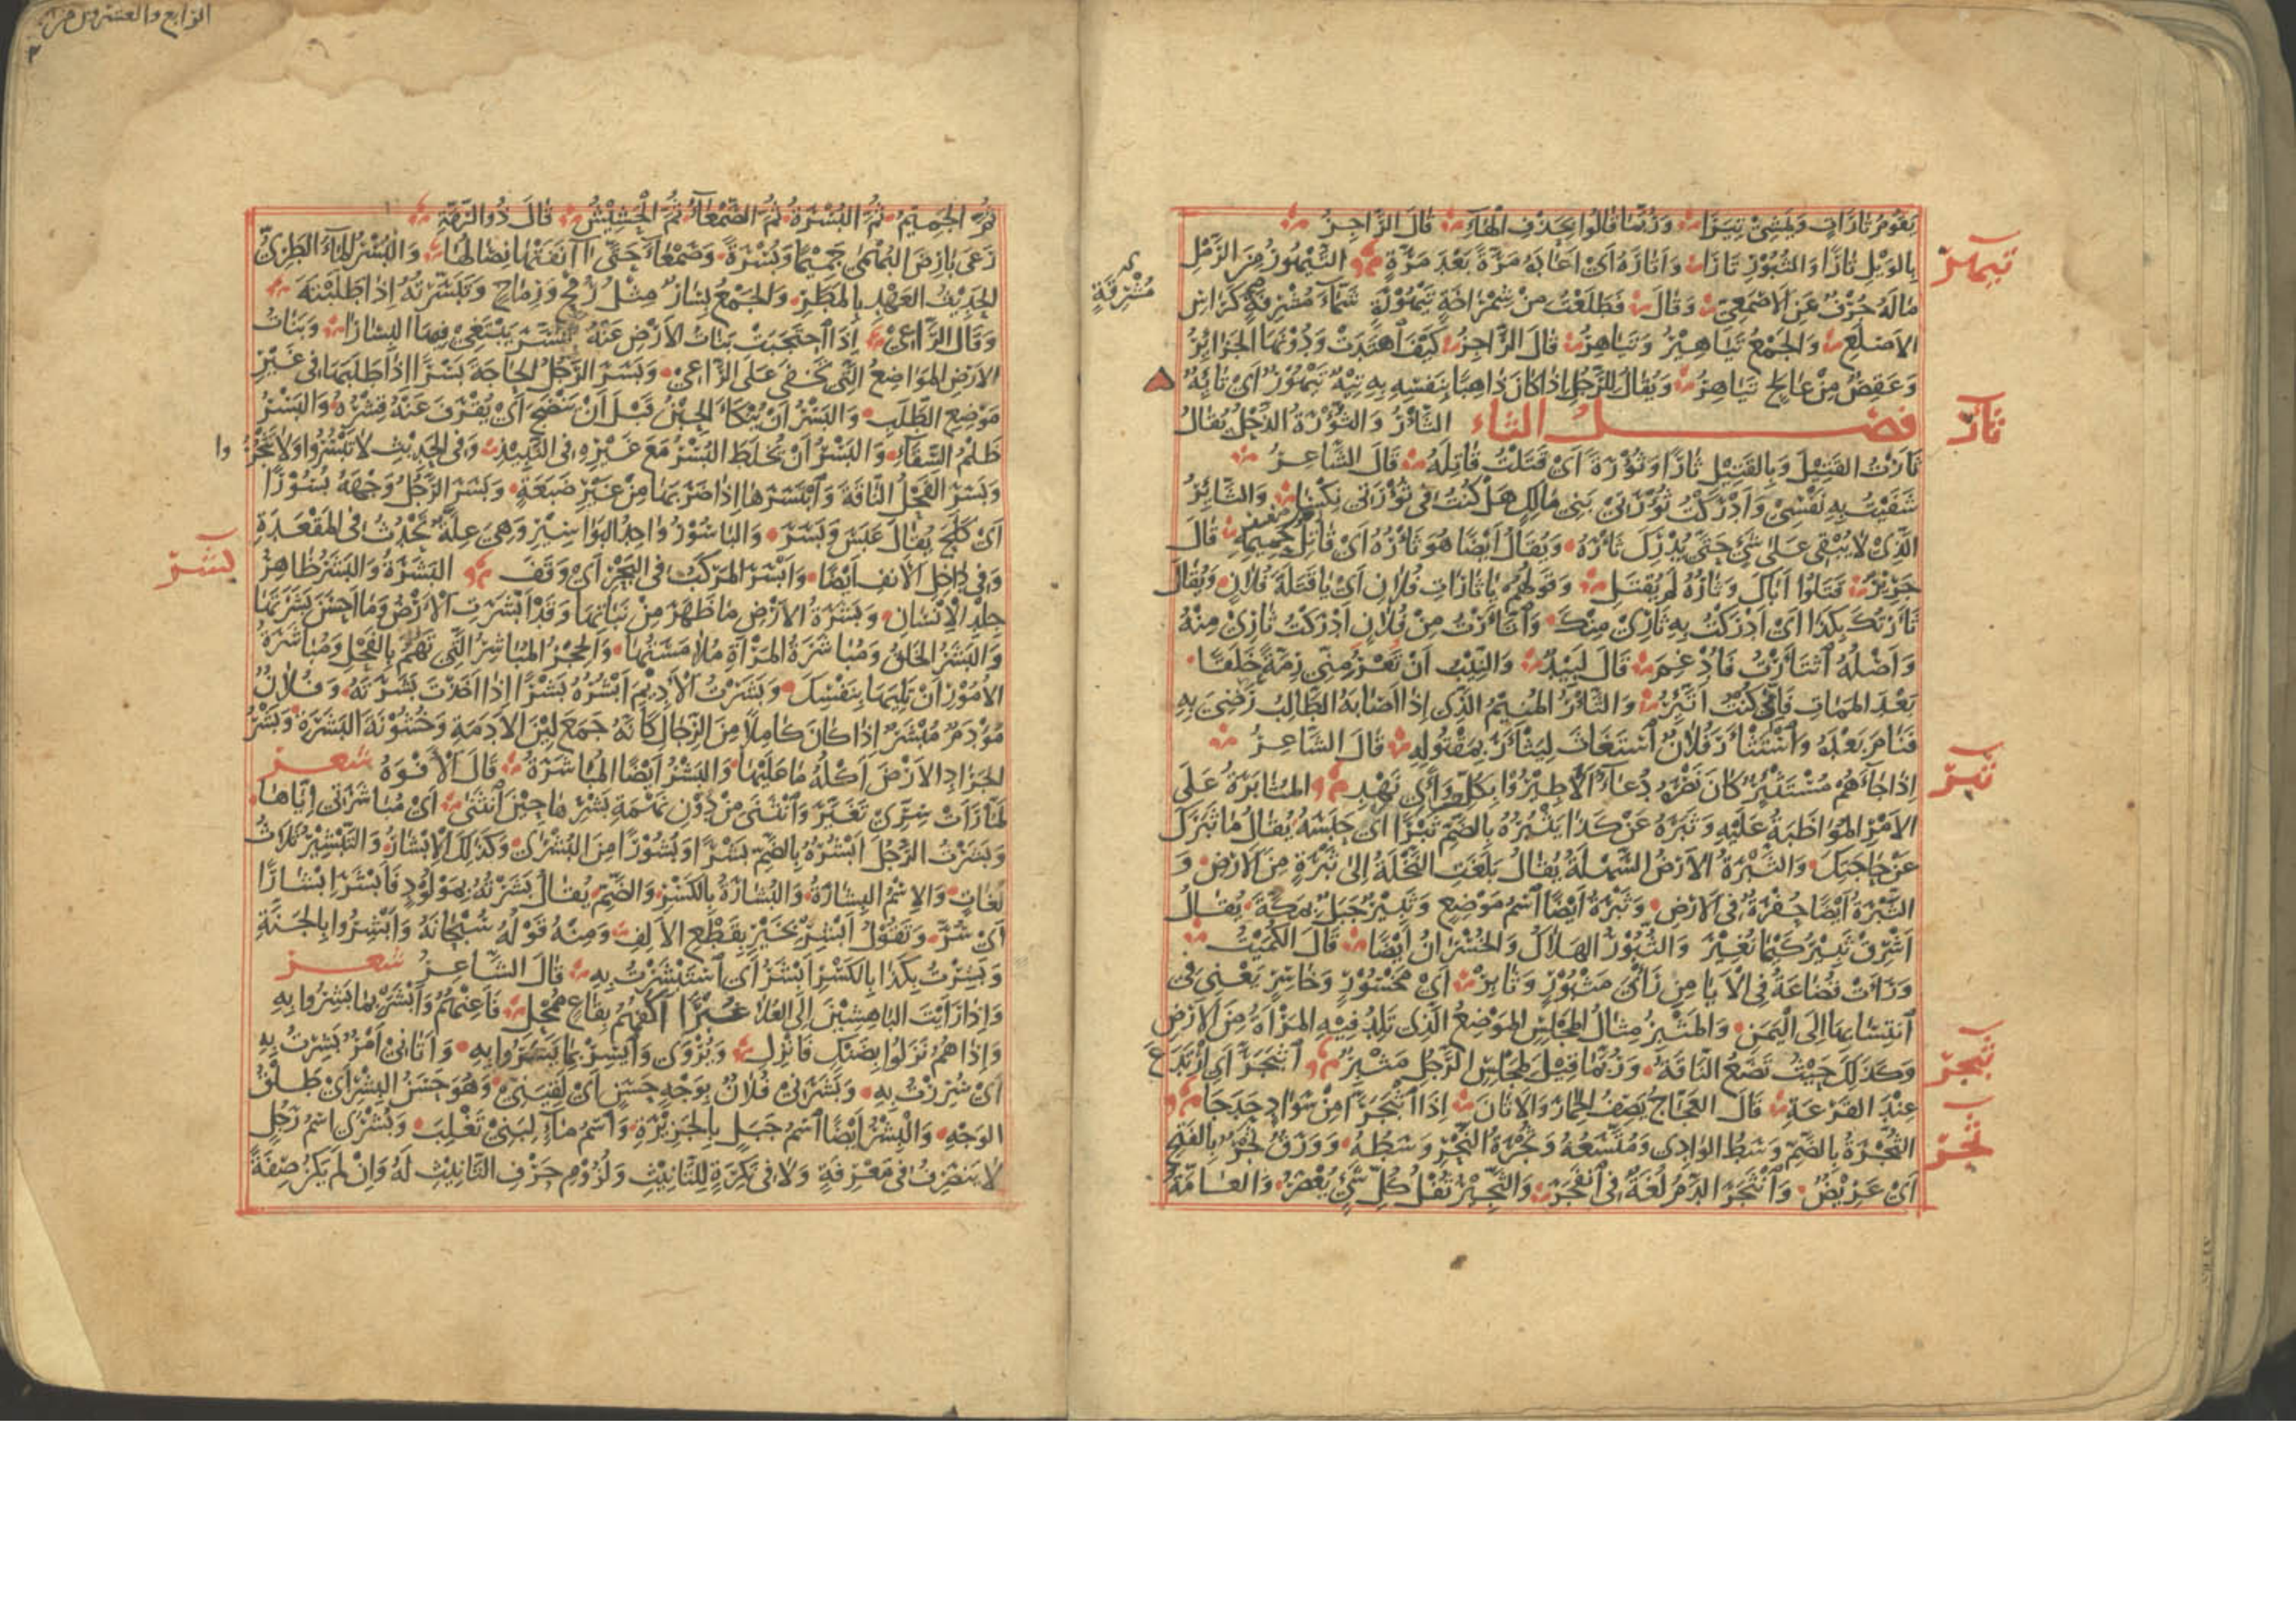 تيهر
يَقُومُ تَارَاتٍ وَيَمْشِي تِيَرَا وَرُبَّمَا قَالُوا بِحَذْفِ الْهَاءِ قَالَ الرَّاجِزُ
بِالوَيْلِ تَارًا وَالثُّبُورِ تَارَا وَأَتَارَهُ أَيْ أَعَادَهُ مَرَّةً بَعْدَ مَرَّةٍ التَّيْهُورُ مِنَ الرَّمْلِ
مَالَهُ جُرُفٌ عَنِ الأَصْمَعِيّ وَقَالَ فَطَلَعَتْ مِنْ شِمْرَاخَةٍ تَيْهُورَةٍ شَمَّاءَ مُشْرِفَةٍ كَرَأْسِ
مُشْرِفَةٍ
الأَصْلَعِ وَالجَمْعُ تَيَاهِيرُ وَتَيَاهِرُ قَالَ الرَّاجِزُ كَيْفَ اهْتَدَتْ وَدُونَهَا الجَزَائِرُ
وَعَقِصٌ مِنْ عَالِجٍ تَيَاهِرُ وَيُقَالُ لِلرَّجُلِ إِذَا كَانَ ذَاهِبًا بِنَفْسِهِ بِهِ تِيْهٌ تَيْهُورٌ أَيْ تَائِهٌ
ثأر
فصل الثاء الثَّأْرُ وَالثُّؤْرَةُ الذَّحْلُ يُقَالُ
ثَأَرْتُ القَتِيلَ وَبِالقَتِيلِ ثَأْرًا وَثُؤْرَةً أَيْ قَتَلْتُ قَاتِلَهُ قَالَ الشَّاعِرُ
شَفَيْتُ بِهِ نَفْسِي وَأَدْرَكْتُ ثُؤْرَتِي بَنِي مَالِكٍ هَلْ كُنْتُ فِي ثُؤْرَتِي نِكْسَا وَالثَّائِرُ
الَّذِي لَا يُبْقِي عَلَى شَيْءٍ حَتَّى يُدْرِكَ ثَأْرَهُ وَيُقَالُ أَيْضًا هُوَ ثَأْرُهُ أَيْ قَاتِلُ حَمِيمِهِ قَالَ
جَرِيرٌ قَتَلُوا أَبَاكَ وَثَأْرُهُ لَمْ يُقْتَلِ وَقَوْلُهُمْ يَا ثَارَاتِ فُلَانٍ أَيْ يَا قَتَلَةَ فُلَانٍ وَيُقَالُ
ثَأَرْتُكَ بِكَذَا أَيْ أَدْرَكْتُ بِهِ ثَأْرِي مِنْكَ وَاثَّأَرْتُ مِنْ فُلَانٍ أَدْرَكْتُ ثَأْرِي مِنْهُ
وَأَصْلُهُ اثْتَأَرْتُ فَأُدْغِمَ قَالَ لَبِيدٌ وَالنِّيبُ إِنْ تَعْرُ مِنِّي رِمَّةً خَلَقًا
بَعْدَ المَمَاتِ فَإِنِّي كُنْتُ أَثَّئِرُ وَالثَّأْرُ المُنِيمُ الَّذِي إِذَا أَصَابَهُ الطَّالِبُ رَضِيَ بِهِ
فَنَامَ بَعْدَهُ وَاسْتَثْأَرَ فُلَانٌ اسْتَغَاثَ لِيَثْأَرَ بِمَقْتُولِهِ قَالَ الشَّاعِرُ
ثبر
إِذَا جَاءَهُمْ مُسْتَثْئِرٌ كَانَ نَصْرُهُ دُعَاءً أَلَا طِيرُوا بِكُلِّ وَأًى نَهْدِ المُثَابَرَةُ عَلَى
الأَمْرِ المُوَاظَبَةُ عَلَيْهِ وَثَبَرَهُ عَنْ كَذَا يَثْبُرُهُ بِالضَّمِّ ثَبْرًا أَيْ حَبَسَهُ يُقَالُ مَا ثَبَرَكَ
عَنْ حَاجَتِكَ وَالثَّبْرَةُ الأَرْضُ السَّهْلَةُ يُقَالُ بَلَغَتِ النَّخْلَةُ إِلَى ثَبْرَةٍ مِنَ الأَرْضِ وَ
الثَّبْرَةُ أَيْضًا حُفْرَةٌ فِي الأَرْضِ وَثَبْرَةُ أَيْضًا اسْمُ مَوْضِعٍ وَثَبِيرٌ جَبَلٌ بِمَكَّةَ يُقَالُ
أَشْرِقْ ثَبِيرُ كَيْمَا نُغِيرُ وَالثُّبُورُ الهَلَاكُ وَالخُسْرَانُ أَيْضًا قَالَ الكُمَيْتُ
وَرَأَتْ قُضَاعَةُ فِي الأَيَامِنِ رَأْيَ مَثْبُورٍ وَثَابِرْ أَيْ مَخْسُورٍ وَخَاسِرٍ يَعْنِي فِي
انْتِسَابِهَا إِلَى اليَمَنِ وَالمَثْبِرُ مِثَالُ المَجْلِسِ المَوْضِعُ الَّذِي تَلِدُ فِيهِ المَرْأَةُ مِنَ الأَرْضِ
ثبجر
وَكَذَلِكَ حَيْثُ تَضَعُ النَّاقَةُ وَرُبَّمَا قِيلَ لِمَجْلِسِ الرَّجُلِ مَثْبِرٌ اثْبَجَرَّ أَيْ ارْتَدَعَ
عِنْدَ الفَزْعَةِ قَالَ العَجَّاجُ يَصِفُ الحِمَارَ وَالأَتَانَ إِذَا اثْبَجَرَّا مِنْ سَوَادٍ حَدَجَا
ثجر
الثُّجْرَةُ بِالضَّمِّ وَسَطُ الوَادِي وَمُتَّسَعُهُ وَثُجْرَةُ النَّحْرِ وَسَطُهُ وَوَرَقٌ ثَجْرٌ بِالفَتْحِ
أَيْ عَرِيضٌ وَانْثَجَرَ الدَّمُ لُغَةٌ فِي انْفَجَرَ وَالثَّجِيرُ ثُفْلُ كُلِّ شَيْءٍ يُعْصَرُ وَالعَامَّةُ
الرابع والعشرون من
ثُمَّ الجَمِيمُ ثُمَّ البُسْرَةُ ثُمَّ الصَّمْعَاءُ ثُمَّ الْحَشِيشُ قَالَ ذُو الرُّمَّةِ
رَعَى بَارِضَ البُهْمَى جَمِيمًا وَبُسْرَةً وَصَمْعَاءَ حَتَّى آنَفَتْهَا نِصَالُهَا وَالبُسْرُ المَاءُ الطَّرِيُّ
الحَدِيثُ العَهْدِ بِالمَطَرِ وَالجَمْعُ بِسَارٌ مِثْلُ رُمْحٍ وَرِمَاحٍ وَتَبَسَّرْتُهُ إِذَا طَلَبْتَهُ
وَقَالَ الرَّاعِيْ إِذَا احْتَجَبَتْ بَنَاتُ الأَرْضِ عَنْهُ تَبَسَّرَ يَبْتَغِي فِيهَا البِسَارَا وَبَنَاتُ
الأَرْضِ المَوَاضِعُ الَّتِي تَخْفَى عَلَى الرَّاعِي وَبَسَرَ الرَّجُلُ الحَاجَةَ بَسْرًا إِذَا طَلَبَهَا فِي غَيْرِ
مَوْضِعِ الطَّلَبِ وَالبَسْرُ أَنْ يُنْكَأَ الحِبْنُ قَبْلَ أَنْ يَنْضَجَ أَيْ يُقْرَفَ عَنْهُ قِشْرُهُ وَالبَسْرُ
ظَلْمُ السِّقَاءِ وَالبَسْرُ أَنْ تَخْلِطَ البُسْرَ مَعَ غَيْرِهِ فِي النَّبِيذِ وَفِي الحَدِيثِ لَا تَبْسُرُوا وَلَا تَثْجُرُوا
وَبَسَرَ الفَحْلُ النَّاقَةَ وَابْتَسَرَهَا إِذَا ضَرَبَهَا مِنْ غَيْرِ ضَبَعَةٍ وَبَسَرَ الرَّجُلُ وَجْهَهُ بُسُورًا
أَيْ كَلَحَ يُقَالُ عَبَسَ وَبَسَرَ وَالبَاسُورُ وَاحِدُ البَوَاسِيرِ وَهِيَ عِلَّةٌ تَحْدُثُ فِي المَقْعَدَةِ
بشر
وَفِي دَاخِلِ الأَنْفِ أَيْضًا وَأَبْسَرَ المَرْكَبُ فِي البَحْرِ أَيْ وَقَفَ البَشَرَةُ وَالبَشَرُ ظَاهِرُ
جِلْدِ الإِنْسَانِ وَبَشَرَةُ الأَرْضِ مَا ظَهَرَ مِنْ نَبَاتِهَا وَقَدْ أَبْشَرَتِ الأَرْضُ وَمَا أَحْسَنَ بَشَرَتَهَا
وَالبَشَرُ الخَلْقُ وَمُبَاشَرَةُ المَرْأَةِ مُلَامَسَتُهَا وَالحِجْرُ المُبَاشِرُ الَّتِي تَهُمُّ بِالفَحْلِ وَمُبَاشَرَةُ
الأُمُورِ أَنْ تَلِيَهَا بِنَفْسِكَ وَبَشَرْتُ الأَدِيمَ أَبْشُرُهُ بَشْرًا إِذَا أَخَذْتَ بَشَرَتَهُ وَفُلَانٌ
مُؤْدَمٌ مُبْشَرٌ إِذَا كَانَ كَامِلًا مِنَ الرِّجَالِ كَأَنَّهُ جَمَعَ لِيْنَ الأَدَمَةِ وَخُشُونَةَ البَشَرَةِ وَبَشْرُ
الجَرَادِ الأَرْضَ أَكْلُهُ مَا عَلَيْهَا وَالبَشْرُ أَيْضًا المُبَاشَرَةُ قَالَ الأَفْوَهُ شعر
لَمَّا رَأَتْ سِرِّي تَغَيَّرَ وَانْثَنَى مِنْ دُوْنِ نَهْمَةِ بَشْرِهَا حِينَ انْثَنَى أَيْ مُبَاشَرَتِي إِيَّاهَا
وَبَشَرْتُ الرَّجُلَ أَبْشُرُهُ بِالضَّمِّ بَشْرًا وَبُشُورًا مِنَ البُشْرَى وَكَذَلِكَ الإِبْشَارُ وَالتَّبْشِيرُ ثَلَاثُ
لُغَاتٍ وَالاِسْمُ البِشَارَةُ وَالبُشَارَةُ بِالكَسْرِ وَالضَّمِّ يُقَالُ بَشَّرْتُهُ بِمَوْلُودٍ فَأَبْشَرَ إِبْشَارًا
أَيْ سُرَّ وَتَقُولُ أَبْشِرْ بِخَيْرٍ بِقَطْعِ الأَلِفِ وَمِنْهُ قَوْلُهُ سُبْحَانَهُ وَأَبْشِرُوا بِالجَنَّةِ
وَبَشِرْتُ بِكَذَا بِالكَسْرِ أَبْشَرُ أَيْ اسْتَبْشَرْتُ بِهِ قَالَ الشَّاعِرُ شعر
وَإِذَا رَأَيْتَ البَاهِشِيْنَ إِلَى العُلَا غُبْرًا أَكُفُّهُمُ بِقَاعٍ مُمْحِلِ فَأَعِنْهُمُ وَابْشَرْ بِمَا بَشِرُوا بِهِ
وَإِذَا هُمُ نَزَلُوا بِضَنْكٍ فَانْزِلِ وَيُرْوَى وَايْسِرْ بِمَا يَسَرُوا بِهِ وَأَتَانِي أَمْرٌ بَشِرْتُ بِهِ
أَيْ سُرِرْتُ بِهِ وَبَشَرَنِي فُلَانٌ بِوَجْهٍ حَسَنٍ أَيْ لَقِيَنِي وَهُوَ حَسَنُ البِشْرِ أَيْ طَلْقُ
الوَجْهِ وَالْبِشْرُ أَيْضًا اسْمُ جَبَلٍ بِالجَزِيْرَةِ وَاسْمُ مَاءٍ لِبَنِي تَغْلِبَ وَبُشْرَى اسْمُ رَجُلٍ
لَا يَنْصَرِفُ فِي مَعْرِفَةٍ وَلَا فِي نَكِرَةٍ لِلتَّأْنِيثِ وَلُزُومِ حَرْفِ التَّأْنِيثِ لَهُ وَإِنْ لَمْ يَكُنْ صِفَةً